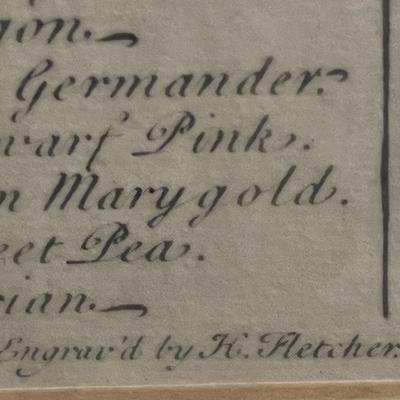 gon.
Germander.
warf Pink.
n Marygold.
eet Pea.
rian.
Engrav'd by H. Fletcher.